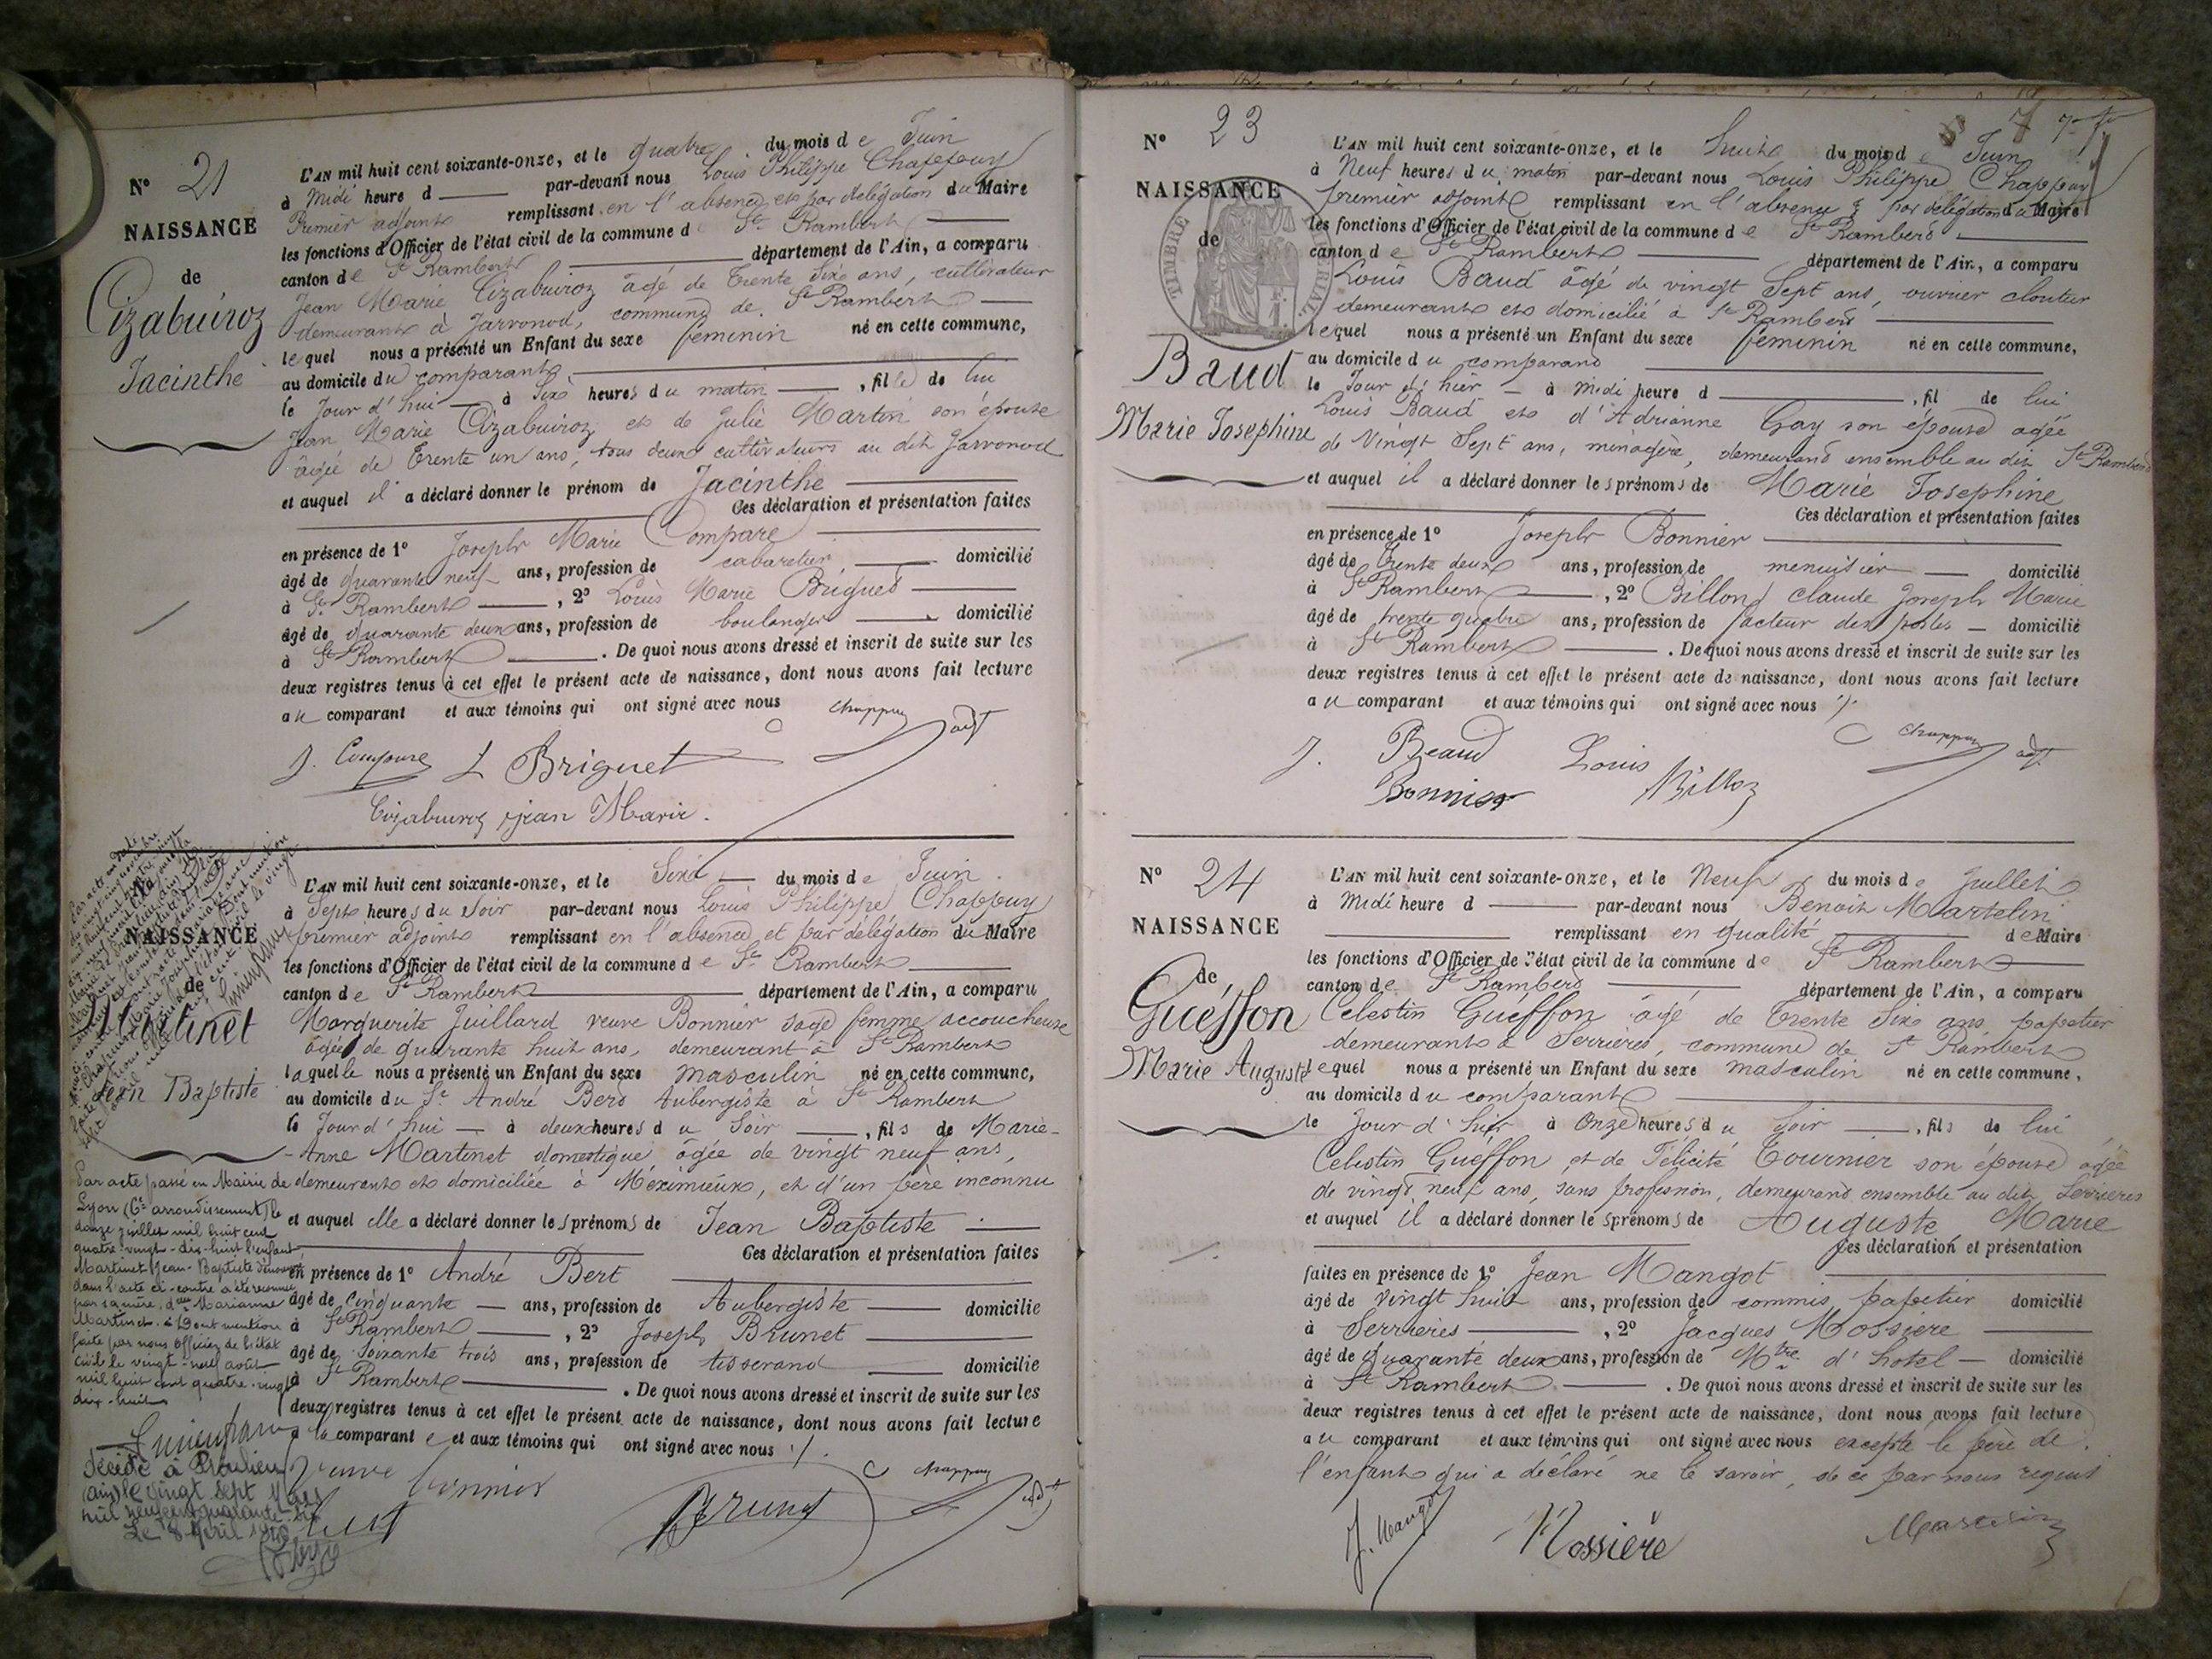 N° 21
NAISSANCE
de
Cizabuiroz
Jacinthe
L'AN mil huit cent soixante-onze, et le quatre du mois de Juin
à Midi heure d par-devant nous Louis Philippe Chappuy
Premier adjoint remplissant en l'absence et par délégation du Maire
les fonctions d'Officier de l'état civil de la commune d St Rambert
canton de St Rambert département de l'Ain, a comparu
Jean Marie Cizabuiroz âgé de trente six ans, cultivateur
demeurant à Javronod, commune de St Rambert
lequel nous a présenté un Enfant du sexe féminin né en cette commune,
au domicile du comparant
le Jour d'hui à Six heures du matin , fille de lui
Jean Marie Cizabuiroz et de Julie Martin son épouse
âgée de trente un ans, tous deux cultivateurs au dit Javronod
et auquel il a déclaré donner le prénom de Jacinthe
Ces déclaration et présentation faites
en présence de 1° Joseph Marie Compare
âgé de quarante neuf ans, profession de cabaretier domicilié
à St Rambert , 2° Louis Marie Briguet
âgé de quarante deux ans, profession de boulanger domicilié
à St Rambert . De quoi nous avons dressé et inscrit de suite sur les
deux registres tenus à cet effet le présent acte de naissance, dont nous avons fait lecture
au comparant et aux témoins qui ont signé avec nous
Chappuy adjt
J. Compare L Briguet
Cizabuiroz jean Marie.
NAISSANCE
de
Martinet
Jean Baptiste
L'AN mil huit cent soixante-onze, et le Six du mois de Juin
à Sept heures du Soir par-devant nous Louis Philippe Chappuy
premier adjoint remplissant en l'absence et par délégation du Maire
les fonctions d'Officier de l'état civil de la commune de St Rambert
canton de St Rambert département de l'Ain, a comparu
Marguerite Juillard veuve Bonnier sage femme accoucheuse
âgée de quarante huit ans, demeurant à St Rambert
laquelle nous a présenté un Enfant du sexe masculin né en cette commune,
au domicile du Sr André Bert Aubergiste à St Rambert
le Jour d'hui à deux heures du Soir , fils de Marie-
-Anne Martinet domestique âgée de vingt neuf ans,
demeurant et domiciliée à Méximieux, et d'un père inconnu
et auquel elle a déclaré donner les prénoms de Jean Baptiste
Ces déclaration et présentation faites
en présence de 1° André Bert
âgé de cinquante ans, profession de Aubergiste domicilié
à St Rambert , 2° Joseph Brunet
âgé de Soixante trois ans, profession de tisserand domicilié
à St Rambert . De quoi nous avons dressé et inscrit de suite sur les
deux registres tenus à cet effet le présent acte de naissance, dont nous avons fait lecture
a la comparante et aux témoins qui ont signé avec nous
Par acte passé en Mairie de
Lyon (6e arrondissement) le
douze juillet mil huit cent
quatre-vingt-dix-huit l'enfant
Martinet Jean-Baptiste dénommé
dans l'acte ci-contre a été reconnu
par sa mère, dlle Marianne
Martinet. Dont mention
faite par nous officier de l'état
civil le vingt-neuf août
mil huit cent quatre-vingt
dix-huit
Décédé à
(Ain) le vingt sept Mars
mil neuf cent quarante
Le 8 Avril
veuve Bonnier
Bert
Brunet
Chappuy adjt
N° 23
7
NAISSANCE
TIMBRE
de
Baud
Marie Josephine
L'AN mil huit cent soixante-onze, et le huit du mois de Juin
à Neuf heures du matin par-devant nous Louis Philippe Chappuy
premier adjoint remplissant en l'absence & par délégation du Maire
les fonctions d'Officier de l'état civil de la commune de St Rambert
canton de St Rambert département de l'Ain, a comparu
Louis Baud âgé de vingt Sept ans, ouvrier cloutier
demeurant et domicilié à St Rambert
lequel nous a présenté un Enfant du sexe féminin né en cette commune,
au domicile du comparant
le Jour d'hier à Midi heure d , fil de lui
Louis Baud et d'Adrianne Gay son épouse agée
de Vingt Sept ans, ménagère, demeurant ensemble au dit St Rambert
et auquel il a déclaré donner les prénoms de Marie Josephine
Ces déclaration et présentation faites
en présence de 1° Joseph Bonnier
âgé de trente deux ans, profession de menuisier domicilié
à St Rambert , 2° Billon claude Joseph Marie
âgé de trente quatre ans, profession de facteur des postes domicilié
à St Rambert . De quoi nous avons dressé et inscrit de suite sur les
deux registres tenus à cet effet le présent acte de naissance, dont nous avons fait lecture
au comparant et aux témoins qui ont signé avec nous
Chappuy adjt
J. Beaud Louis
Bonnier Billon
N° 24
NAISSANCE
de
Guéffon
Marie Auguste
L'AN mil huit cent soixante-onze, et le Neuf du mois de Juillet
à Midi heure d par-devant nous Benoit Martelin
remplissant en qualité de Maire
les fonctions d'Officier de l'état civil de la commune de St Rambert
canton de St Rambert département de l'Ain, a comparu
Celestin Guéffon âgé de trente Six ans, papetier
demeurant à Serrières, commune de St Rambert
lequel nous a présenté un Enfant du sexe masculin né en cette commune,
au domicile du comparant
le Jour d'hier à Onze heures du Soir , fils de lui
Celestin Guéffon et de Félicité Tournier son épouse agée
de vingt neuf ans, sans profession, demeurant ensemble au dit Serrieres
et auquel il a déclaré donner les prénoms de Auguste Marie
Ces déclaration et présentation
faites en présence de 1° Jean Mangot
âgé de Vingt huit ans, profession de commis papetier domicilié
à Serrieres , 2° Jacques Mossiere
âgé de quarante deux ans, profession de Mtre d'hotel domicilié
à St Rambert . De quoi nous avons dressé et inscrit de suite sur les
deux registres tenus à cet effet le présent acte de naissance, dont nous avons fait lecture
au comparant et aux témoins qui ont signé avec nous excepté le père de
l'enfant qui a déclaré ne le savoir, de ce par nous requis
J. Mangot Mossière Martelin